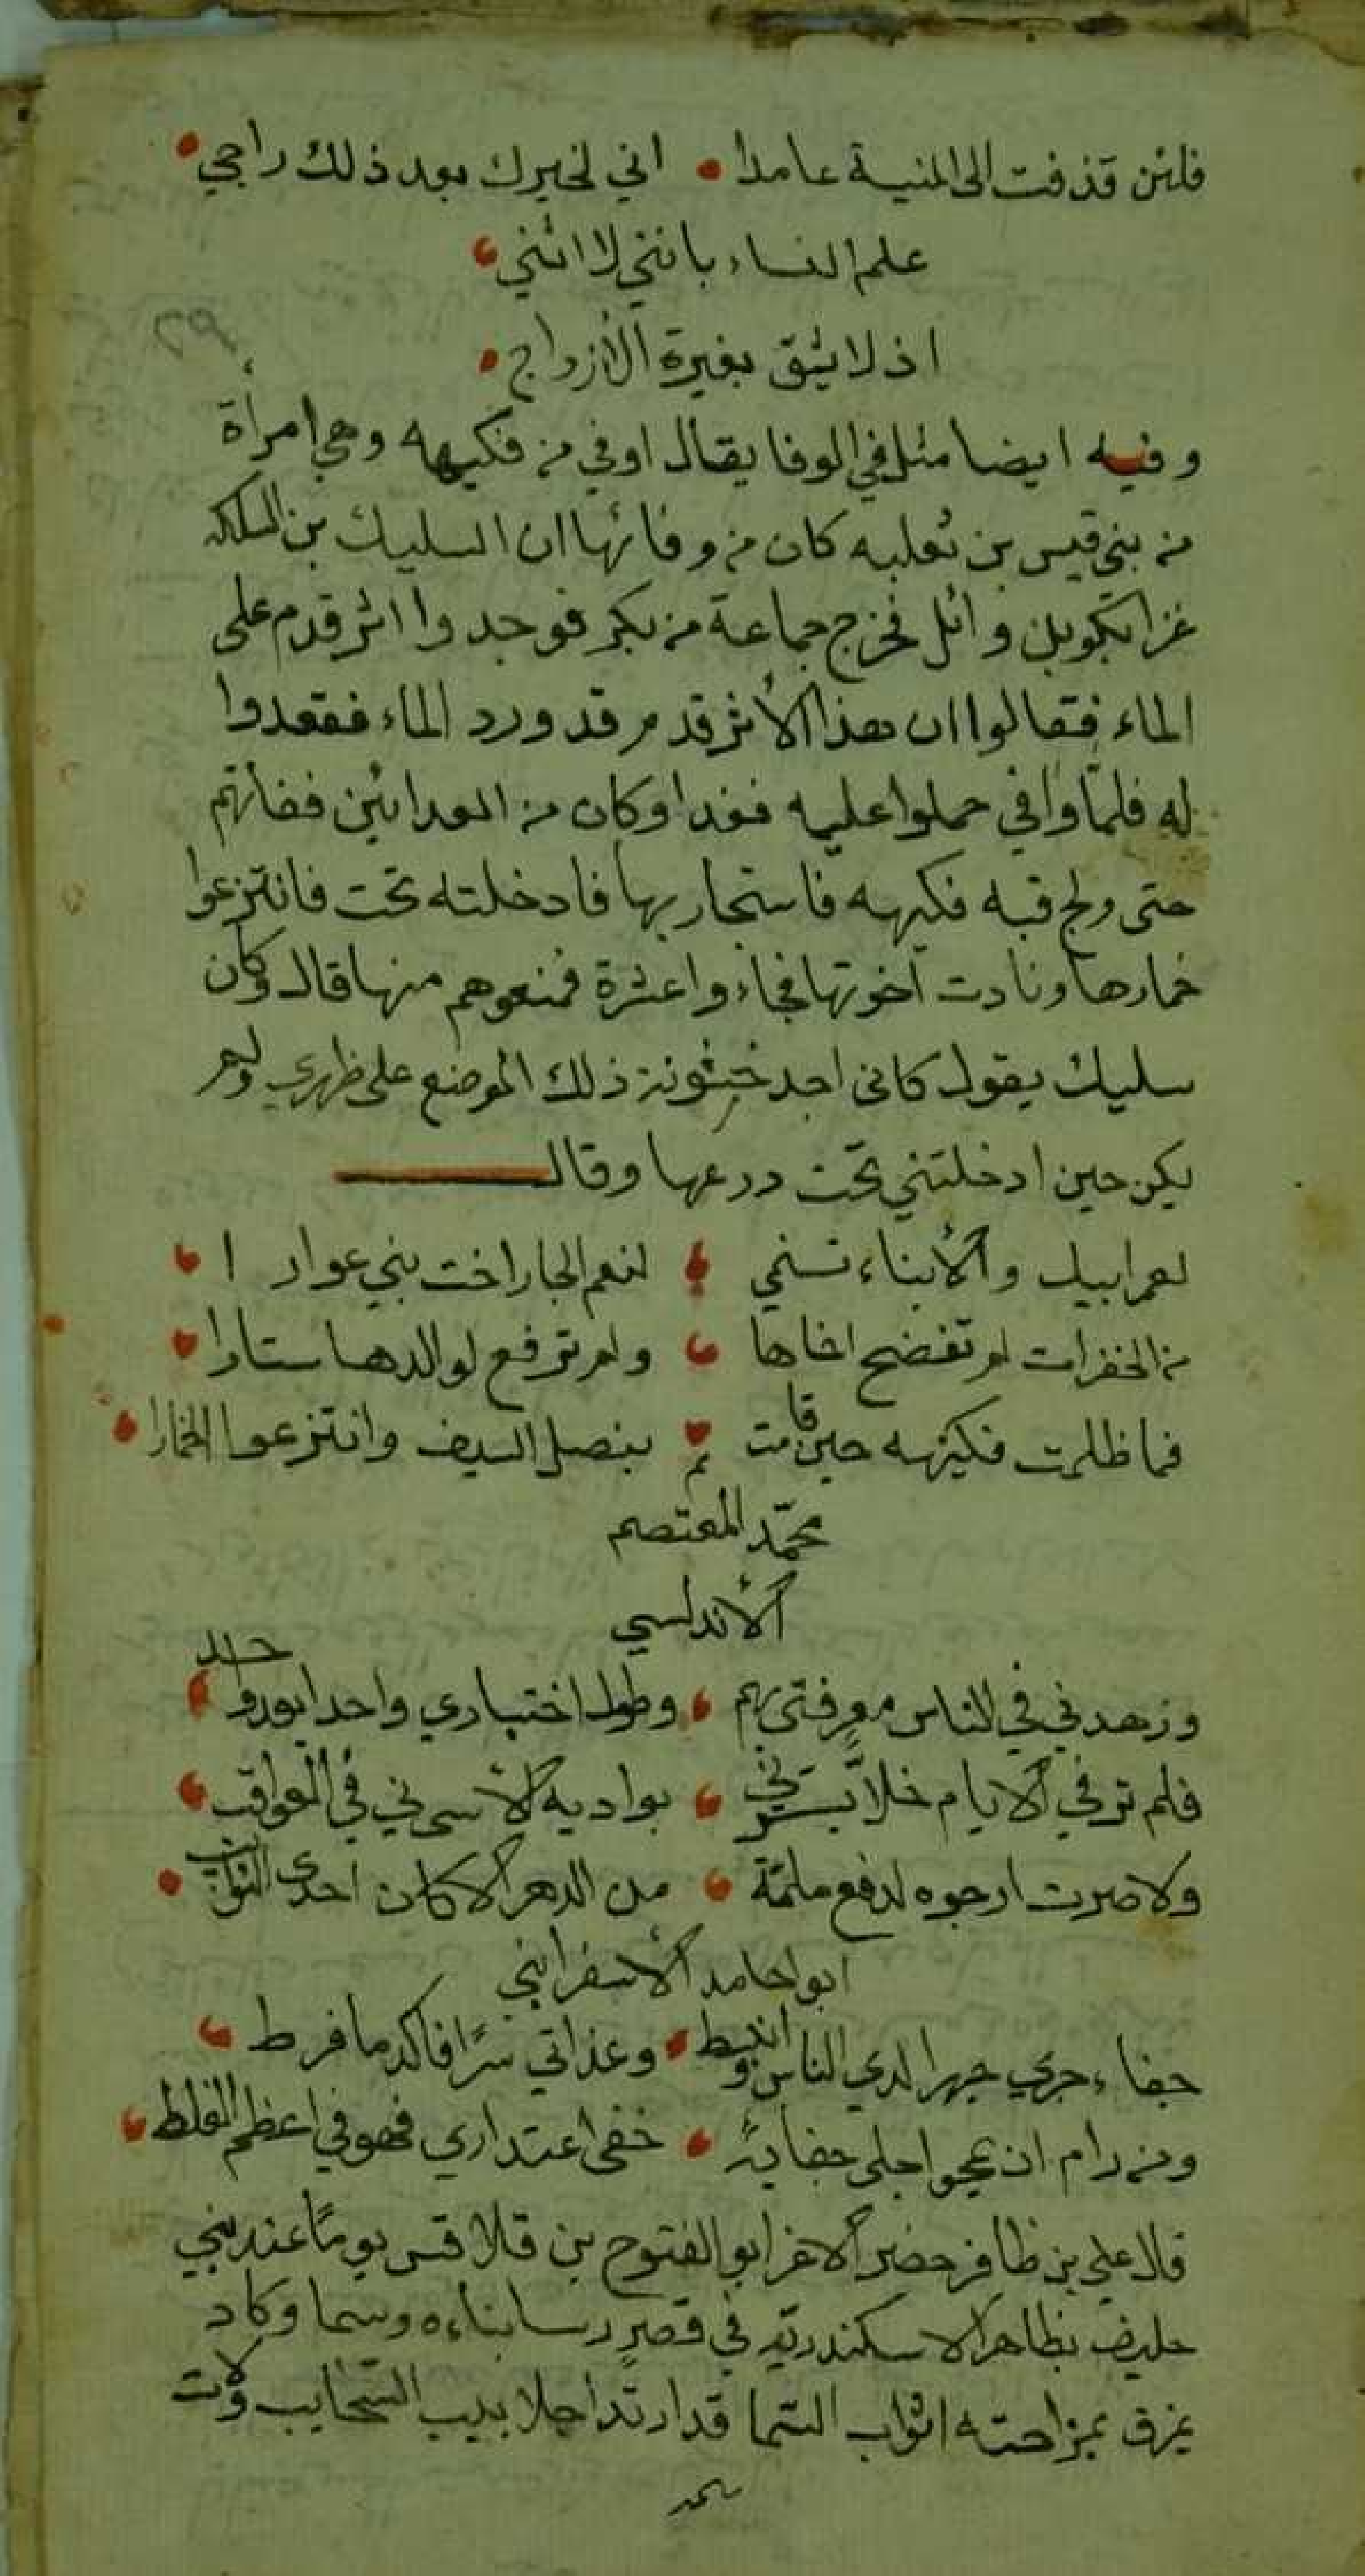 فلئن قذفت الى المنية عامدا • اني لخيرك بعد ذلك راجي
علم النساء بانني لا انثني
اذ لا يثق بغيرة الازواج
وفيه ايضا مثل في الوفا يقال اوفي من فكيهه وهي امرأة
من بني قيس بن ثعلبه كان من وفائها ان السليك بن السلكه
غزا بكر بن وائل فخرج جماعة من بكر فوجدوا اثر قدم على
الماء فقالوا ان هذا الاثر قدم قد ورد الماء فقعدوا
له فلما وافي حملوا عليه فعدا وكان من العدائين ففاتهم
حتى ولج قبه فكيهه فاستجار بها فادخلته تحت فانتزعوا
خمارها ونادت اخوتها فجاءوا عشرة فمنعوهم منها قال وكان
سليك يقول كاني اجد خشونة ذلك الموضع على ظهري ولم
يكن حين ادخلتني تحت درعها وقال
لعمر ابيك والأبناء تنمي لنعم الجار اخت بني عوارا
من الخفرات لم تفضح اخاها ولم ترفع لوالدها ستارا
فما ظلمت فكيهه حين قامت بنصل السيف وانتزعوا الخمارا
محمّد المعتصم
الأندلسي
وزهدني في الناس معرفتي بهم وطول اختباري واحدا بعد واحد
فلم ترني الايام خلا يسرني بواديه الا سرني في العواقب
ولا صرت ارجوه لدفع ملمّة من الدهر الا كان احدى النوائب
ابو احامد الاسفرايني
جفاء جري جهرا لدي الناس وانبسط وعذاتي سرًا فاكد ما فرط
ومن رام ان يمحوا جلي جفايهً خفي اعتداري فهو في اعظم الغلط
قال علي بن ظافر حضر الاغر ابو الفتوح بن قلاقس يومًا عند بني
خليف بظاهر الاسكندريّه في قصر رسا بناءه وسما وكاد
يمزق بمزاحمته اثواب السّما قد ارتدا جلابيب السّحايب ولات